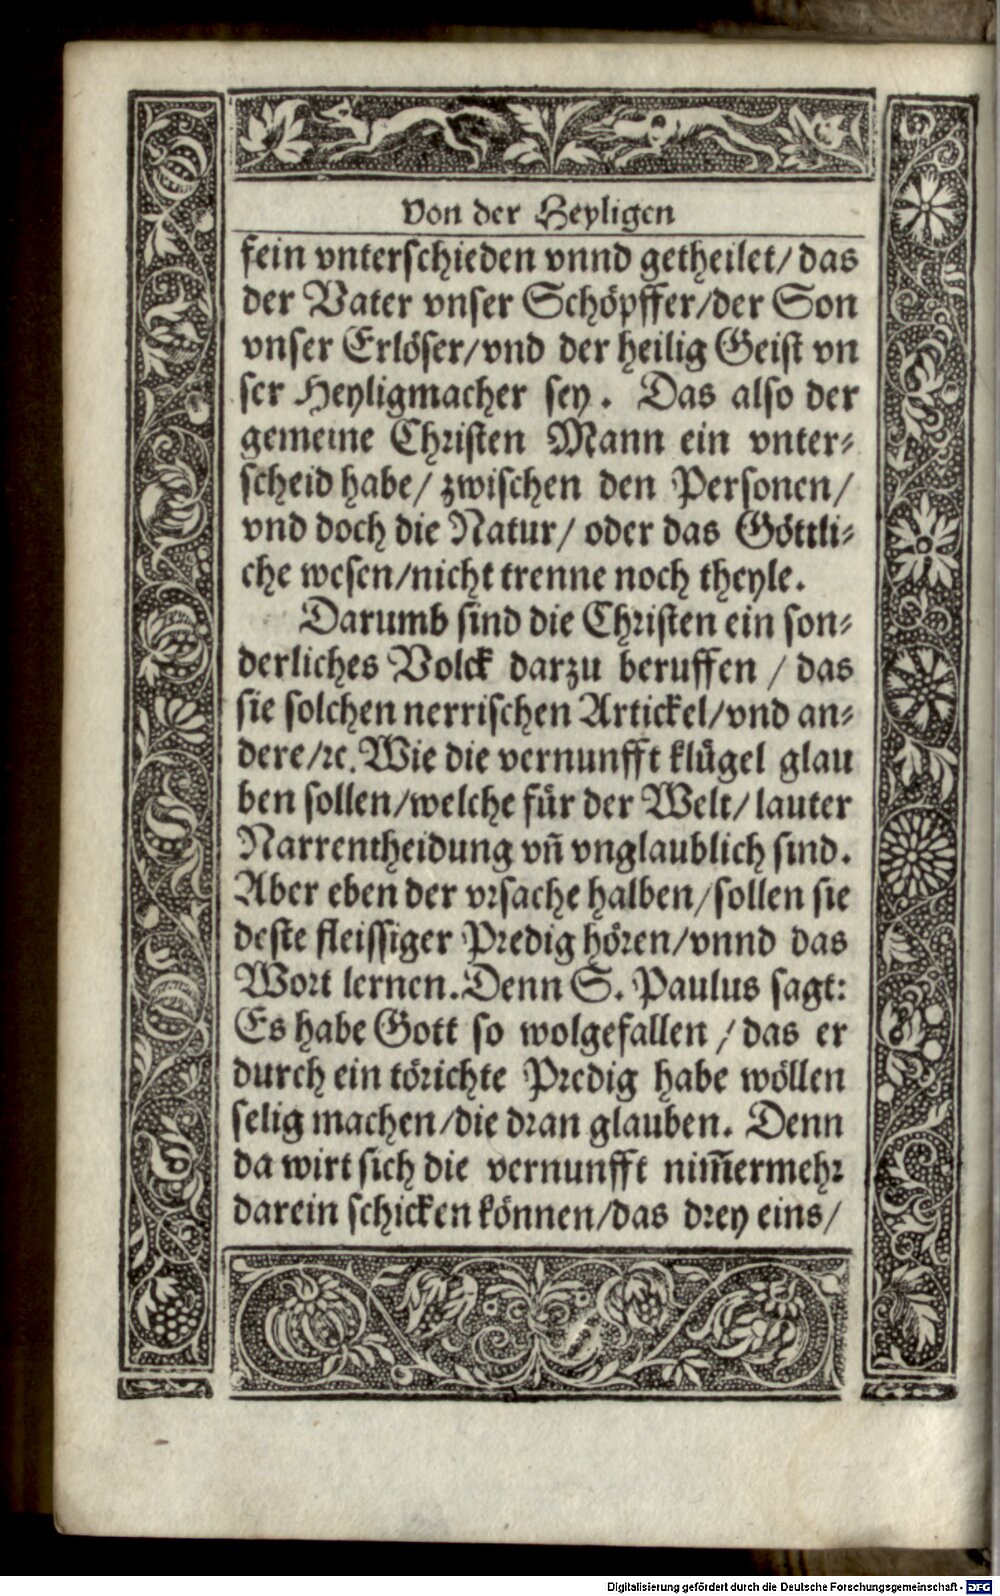 Von der Heyligen
fein vnterschieden vnnd getheilet/ das
der Vater vnser Schöpffer/der Son
vnser Erlöser/vnd der heilig Geist vn
ser Heyligmacher sey. Das also der
gemeine Christen Mann ein vnter-
scheid habe/ zwischen den Personen/
vnd doch die Natur/ oder das Göttli-
che wesen/nicht trenne noch theyle.
Darumb sind die Christen ein son-
derliches Volck darzu beruffen / das
sie solchen nerrischen Artickel/vnd an-
dere/ꝛc. Wie die vernunfft klügel glau
ben sollen/welche für der Welt/ lauter
Narrentheidung vñ vnglaublich sind.
Aber eben der vrsache halben/sollen sie
deste fleissiger Predig hören/vnnd das
Wort lernen. Denn S. Paulus sagt:
Es habe Gott so wolgefallen / das er
durch ein törichte Predig habe wöllen
selig machen/die dran glauben. Denn
da wirt sich die vernunfft nim̃ermehr
darein schicken können/das drey eins/
Digitalisierung gefördert durch die Deutsche Forschungsgemeinschaft - DFG